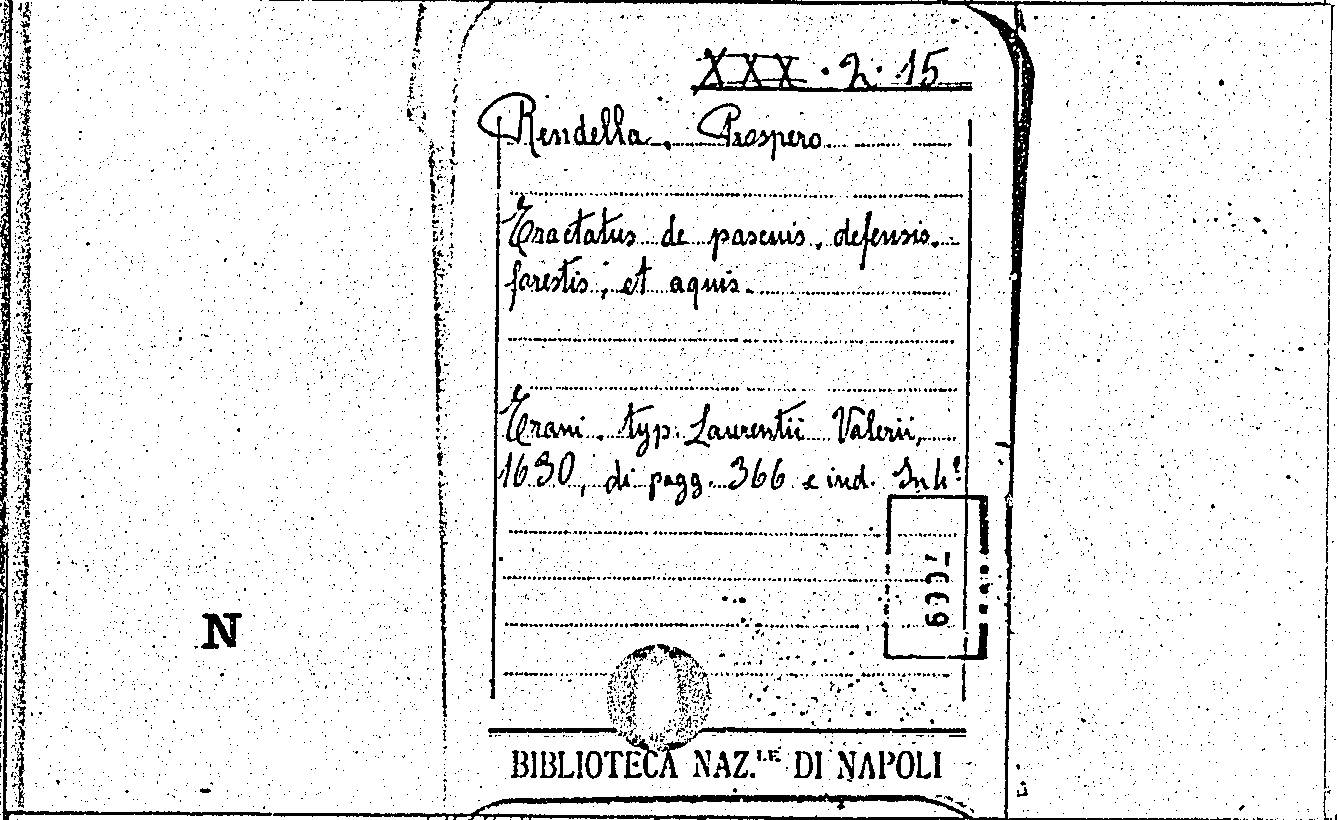 XXX.2.15
Rendella, Prospero
Tractatus de pascuis, defensis,
forestis, et aquis.
Trani, typ. Laurentii Valerii,
1630, di pagg. 366 e ind. In 4º
6007
N
BIBLIOTECA NAZ.LE DI NAPOLI